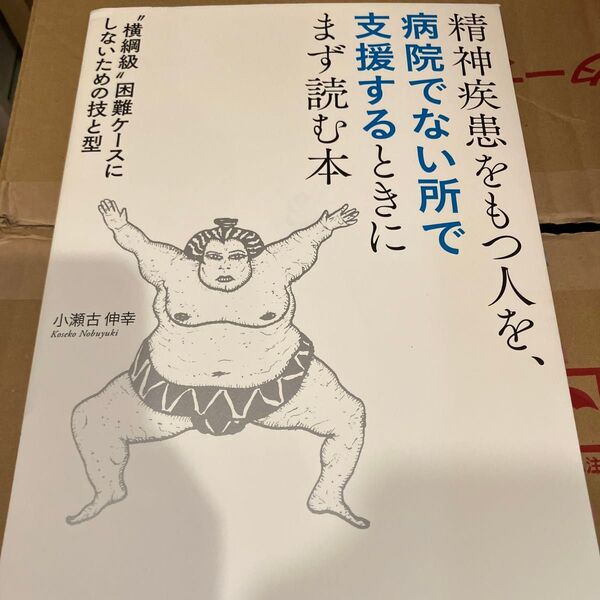 精神疾患をもつ人を、
病院でない所で
支援するときに
まず読む本
“横綱級”困難ケースに
しないための技と型
小瀬古 伸幸
Koseko Nobuyuki